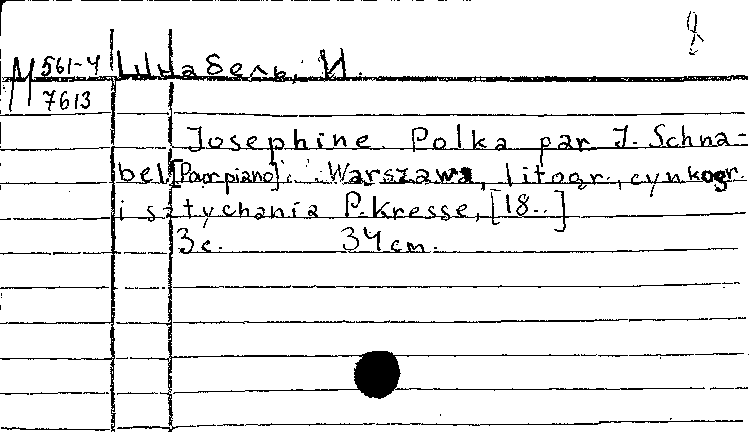 8
М 561-4 Шнабель, И.
7613
Josephine Polka par J. Schna-
bel [Pour piano]. Warszawa, litogr., cynkogr.
i sztychania P. Kresse, [18..]
3 с. 34 cm.